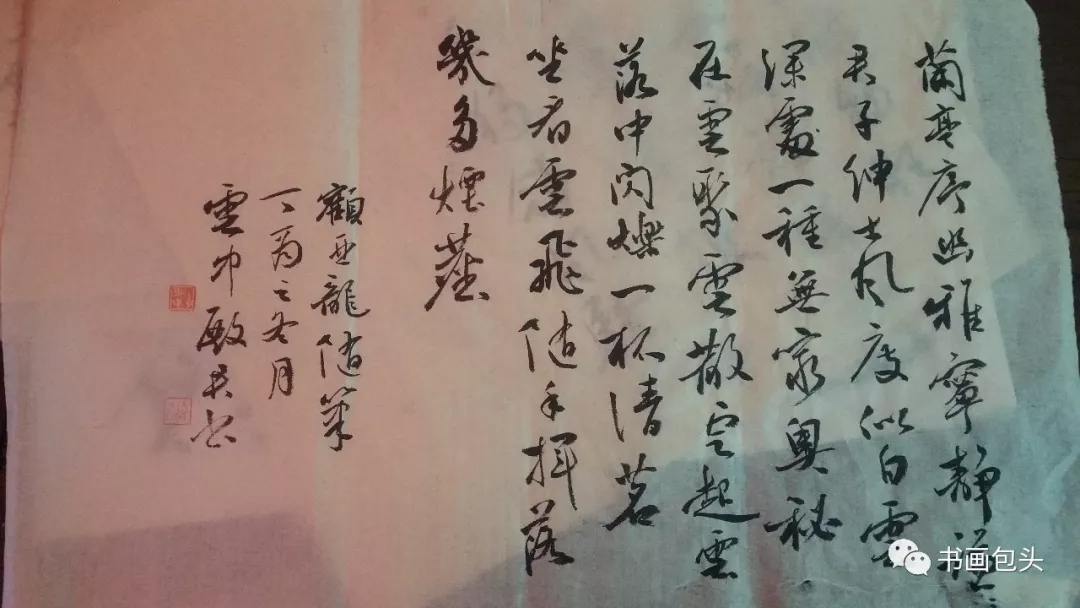 蘭亭序幽雅寧靜禪
君子紳士風度似白雲
深處一種無家奧秘
在雲聚雲散雲起雲
落中閃爍一杯清茗
坐看雲飛隨手揮落
幾多煙塵
顧亞龍隨筆
丁酉之冬月
雲中殿臣书
书画包头